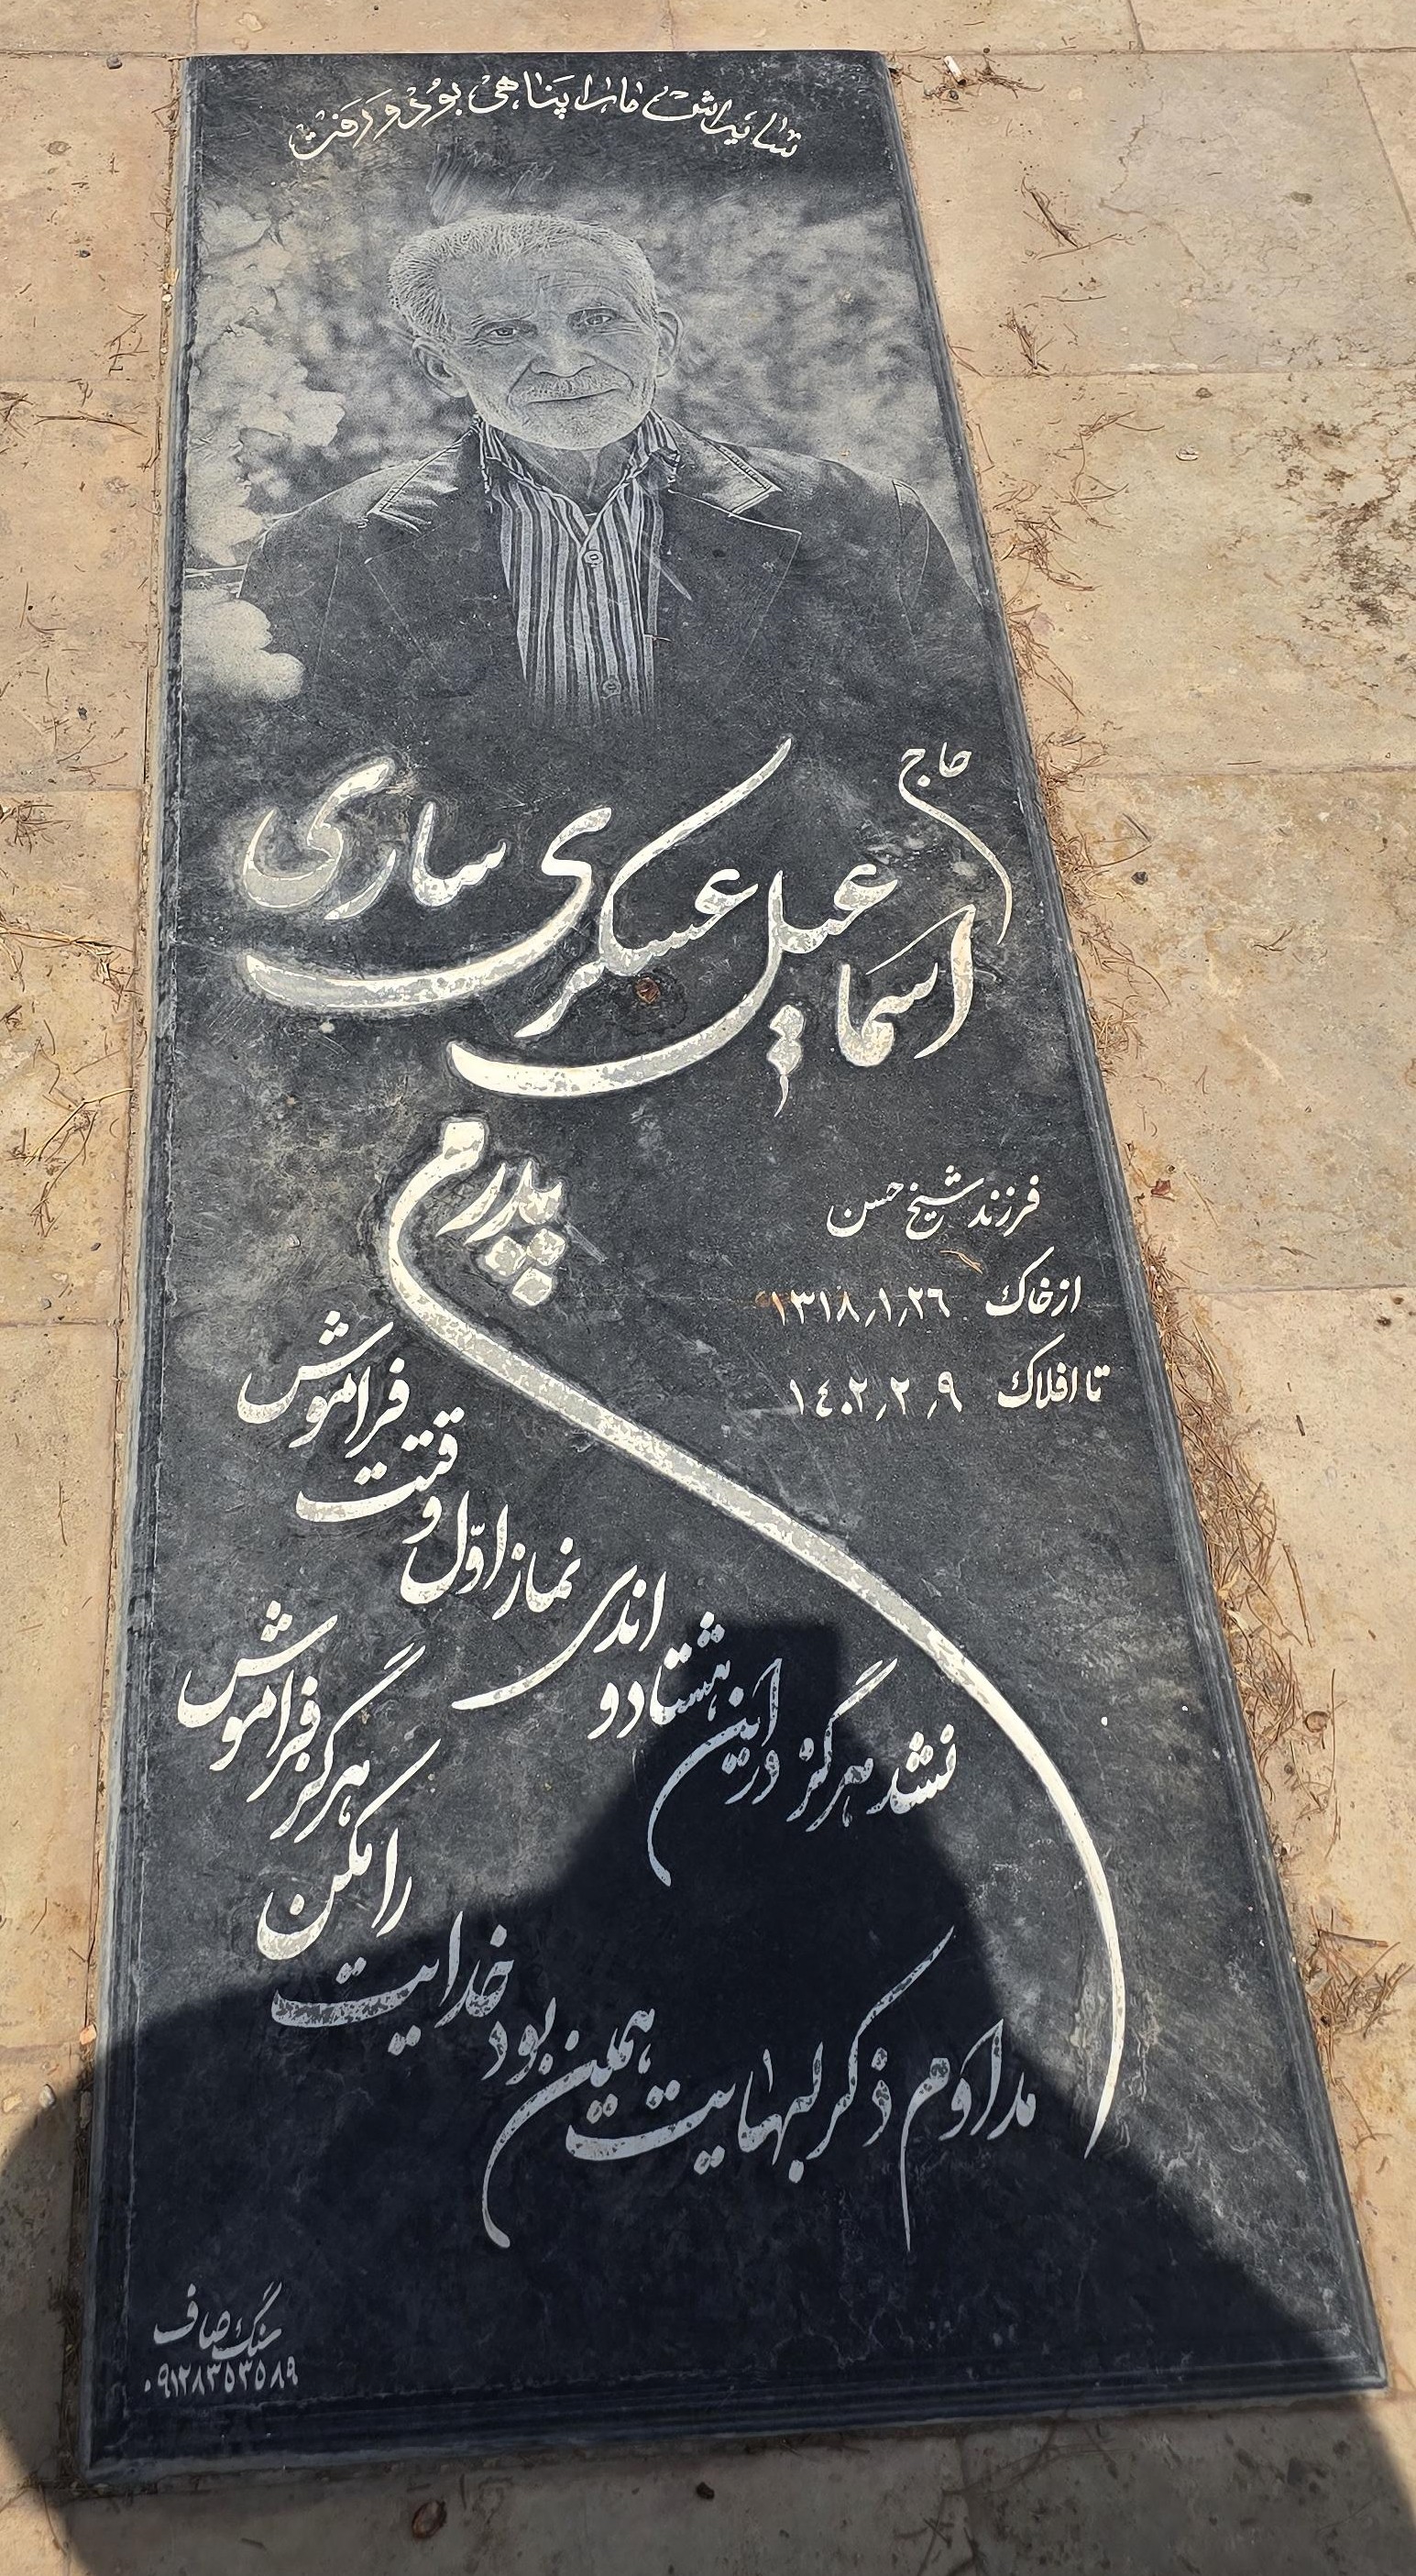 سایه‌اش ما را پناهی بود و رفت
حاج
اسماعیل عسکری ساری
فرزند شیخ حسن
از خاک ۱۳۱۸٫۱٫۲۶
تا افلاک ۱۴۰۲٫۲٫۹
پدرم
نشد هرگز در این هشتاد و اندی نماز اوّل وقتت فراموش
مداوم ذکر لبهایت همین بود خدایت را مکن هرگز فراموش
سنگ صاف
۰۹۱۲۸۳۵۳۵۸۹